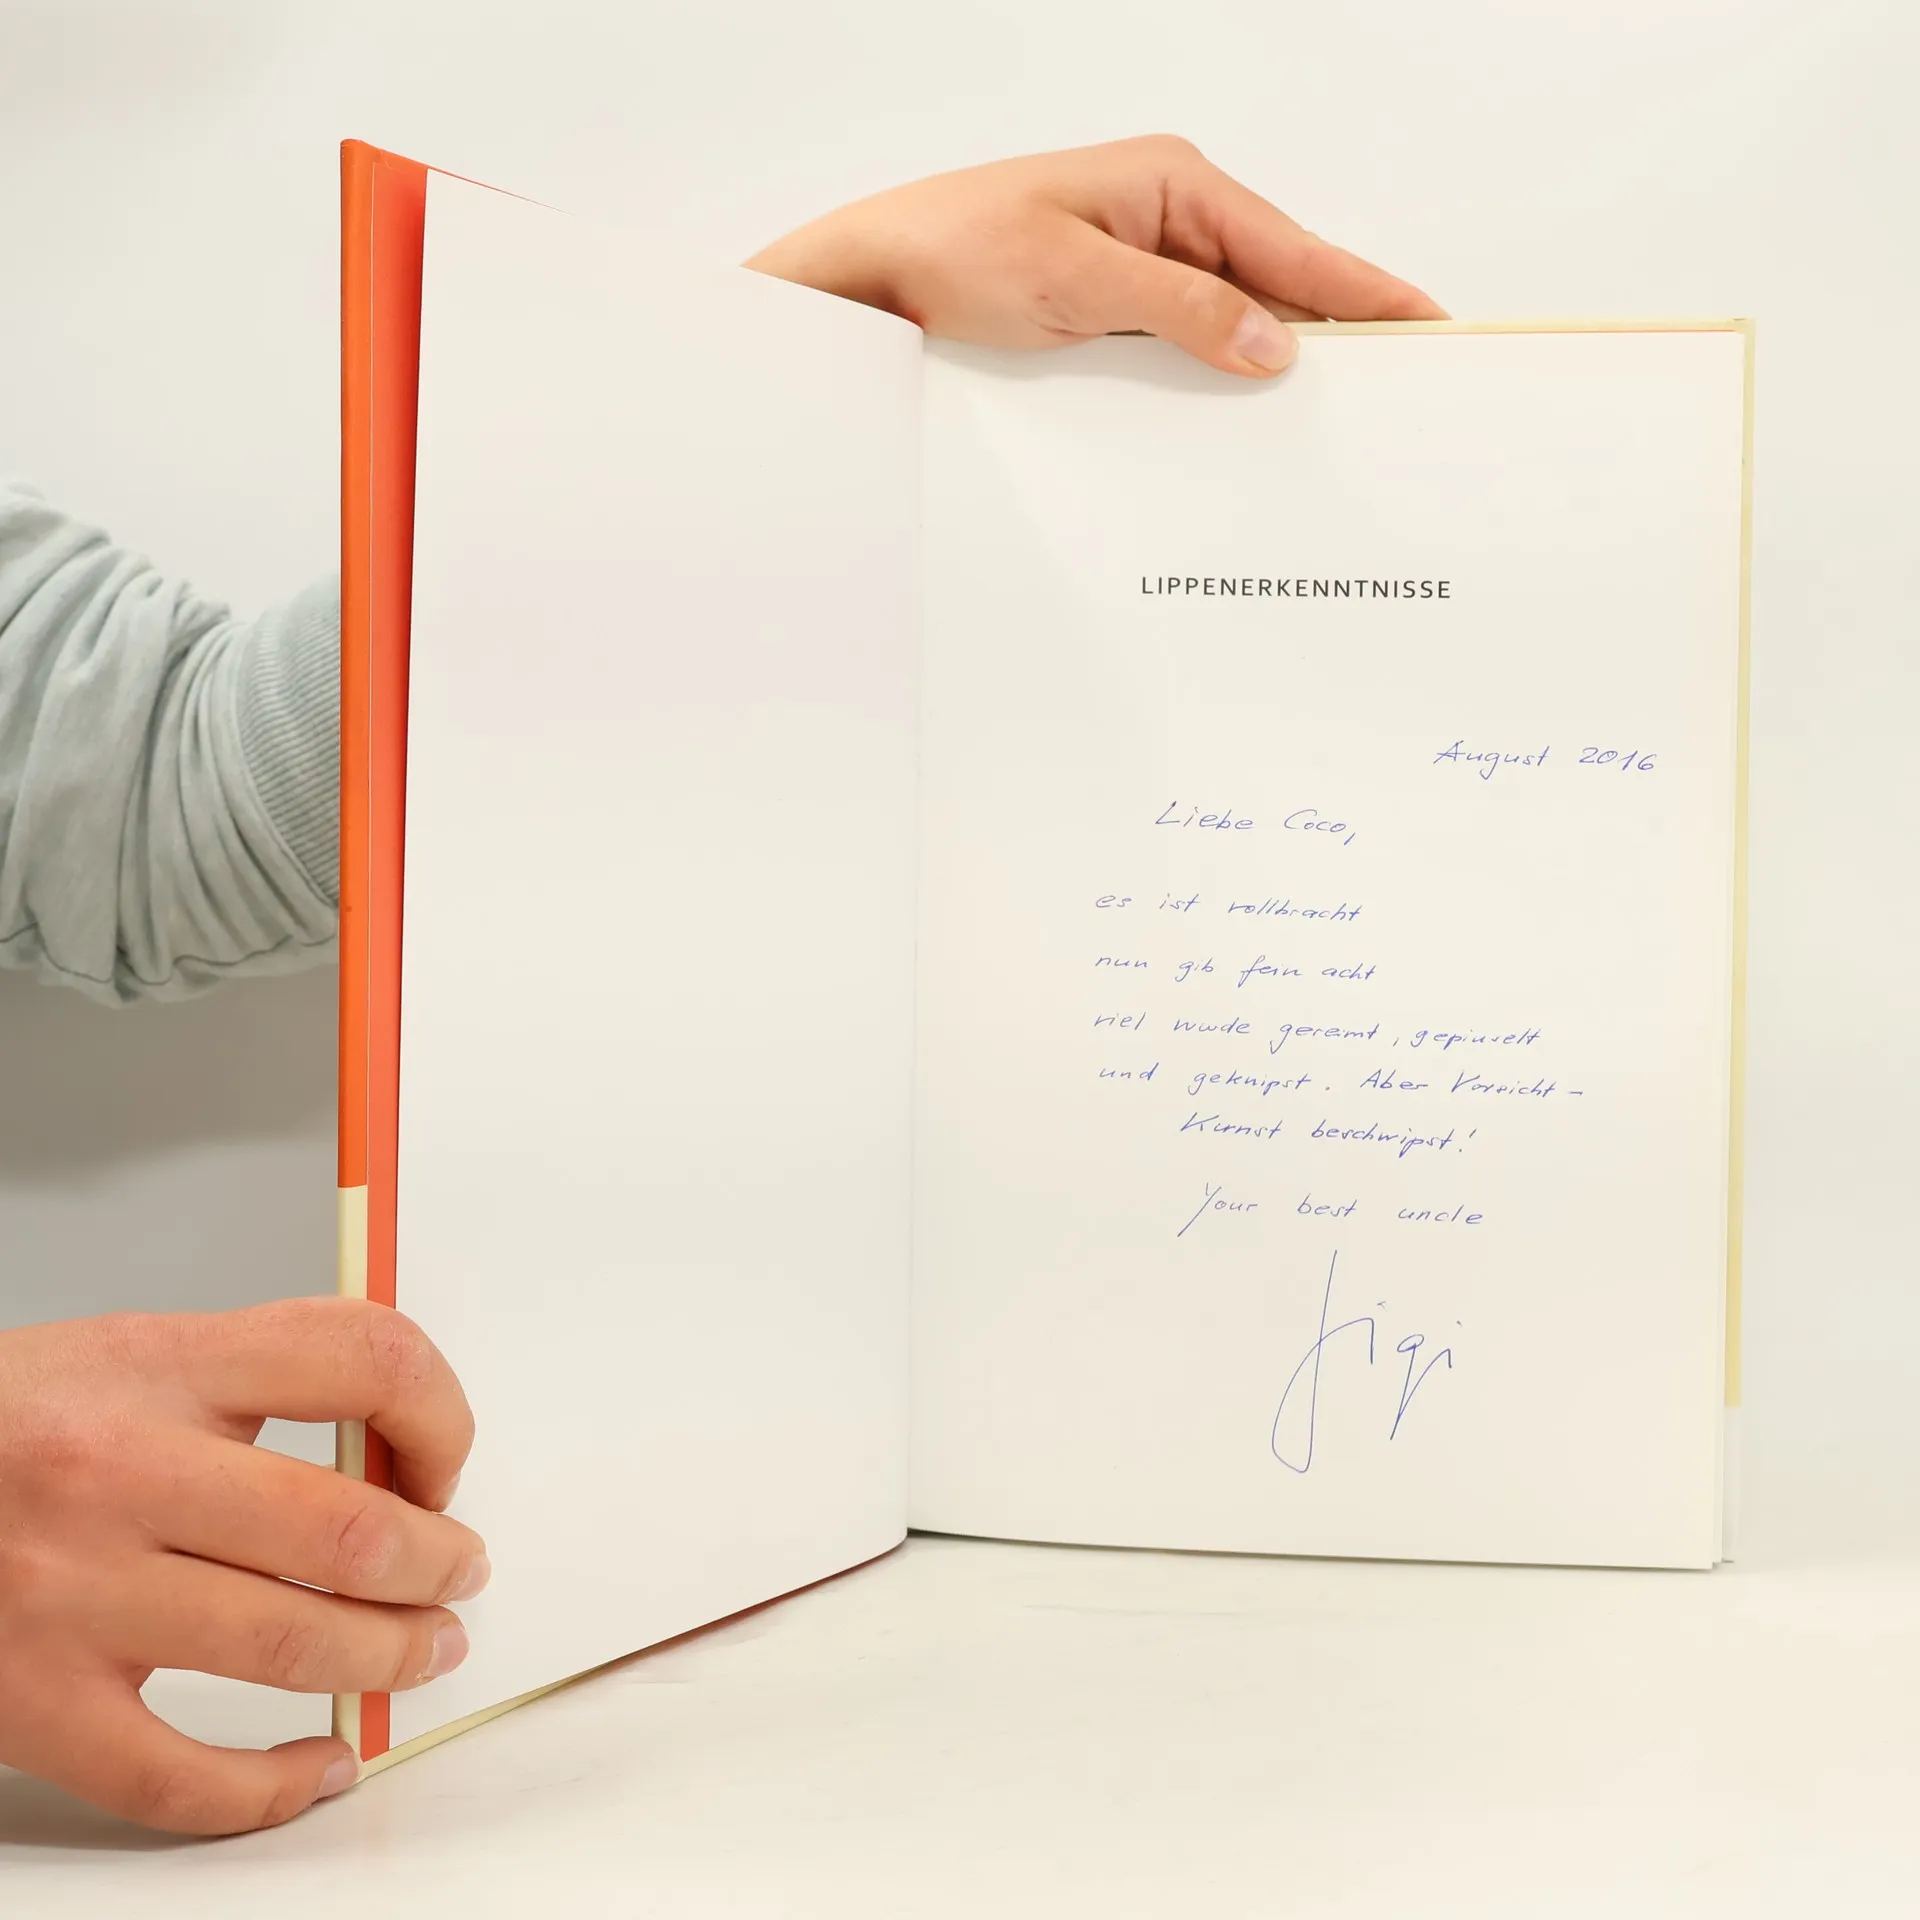 LIPPENERKENNTNISSE
August 2016
Liebe Coco,
es ist vollbracht
nun gib fein acht
viel wurde gereimt, gepinselt
und geknipst. Aber Vorsicht –
Kunst beschwipst!
Your best uncle